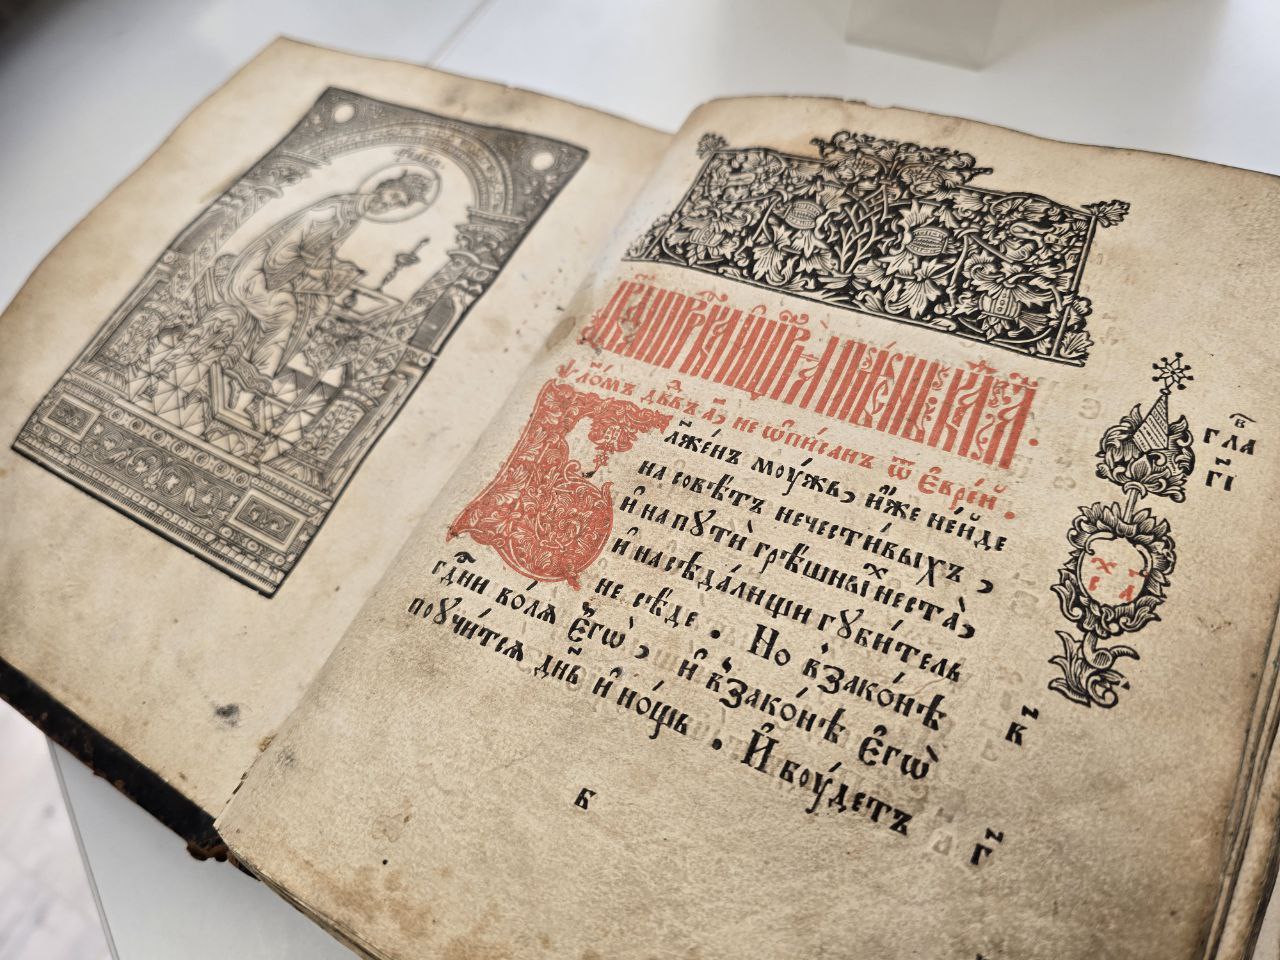 ѱало́мъ дв҃дъ а҃, не ѡ҆пи́санъ ѿ є҆врє́й.
Бл҃же́нъ моу́жъ, и҆́же не и҆́де
на совѣ́тъ нечести́выхъ,
и҆ на пꙋтѝ грѣ́шныⷯ не ста̀,
и҆ на сѣда́лищи гꙋби́тель
не сѣ́де. Но в̾зако́нѣ
гдⷭ҇ни во́лѧ є҆гѡ̀, и҆ в̾зако́нѣ є҆гѡ̀
поꙋчи́тсѧ дн҃ь и҆ но́щь. И҆ боу́детъ
гла
г҃і
в҃
г҃
Б